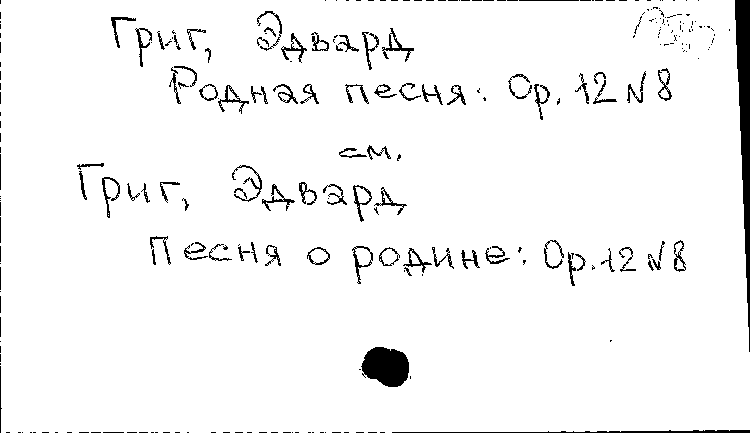 Григ, Эдвард
Родная песня: Op. 12 N 8
см.
Григ, Эдвард
Песня о родине: Op. 12 N 8